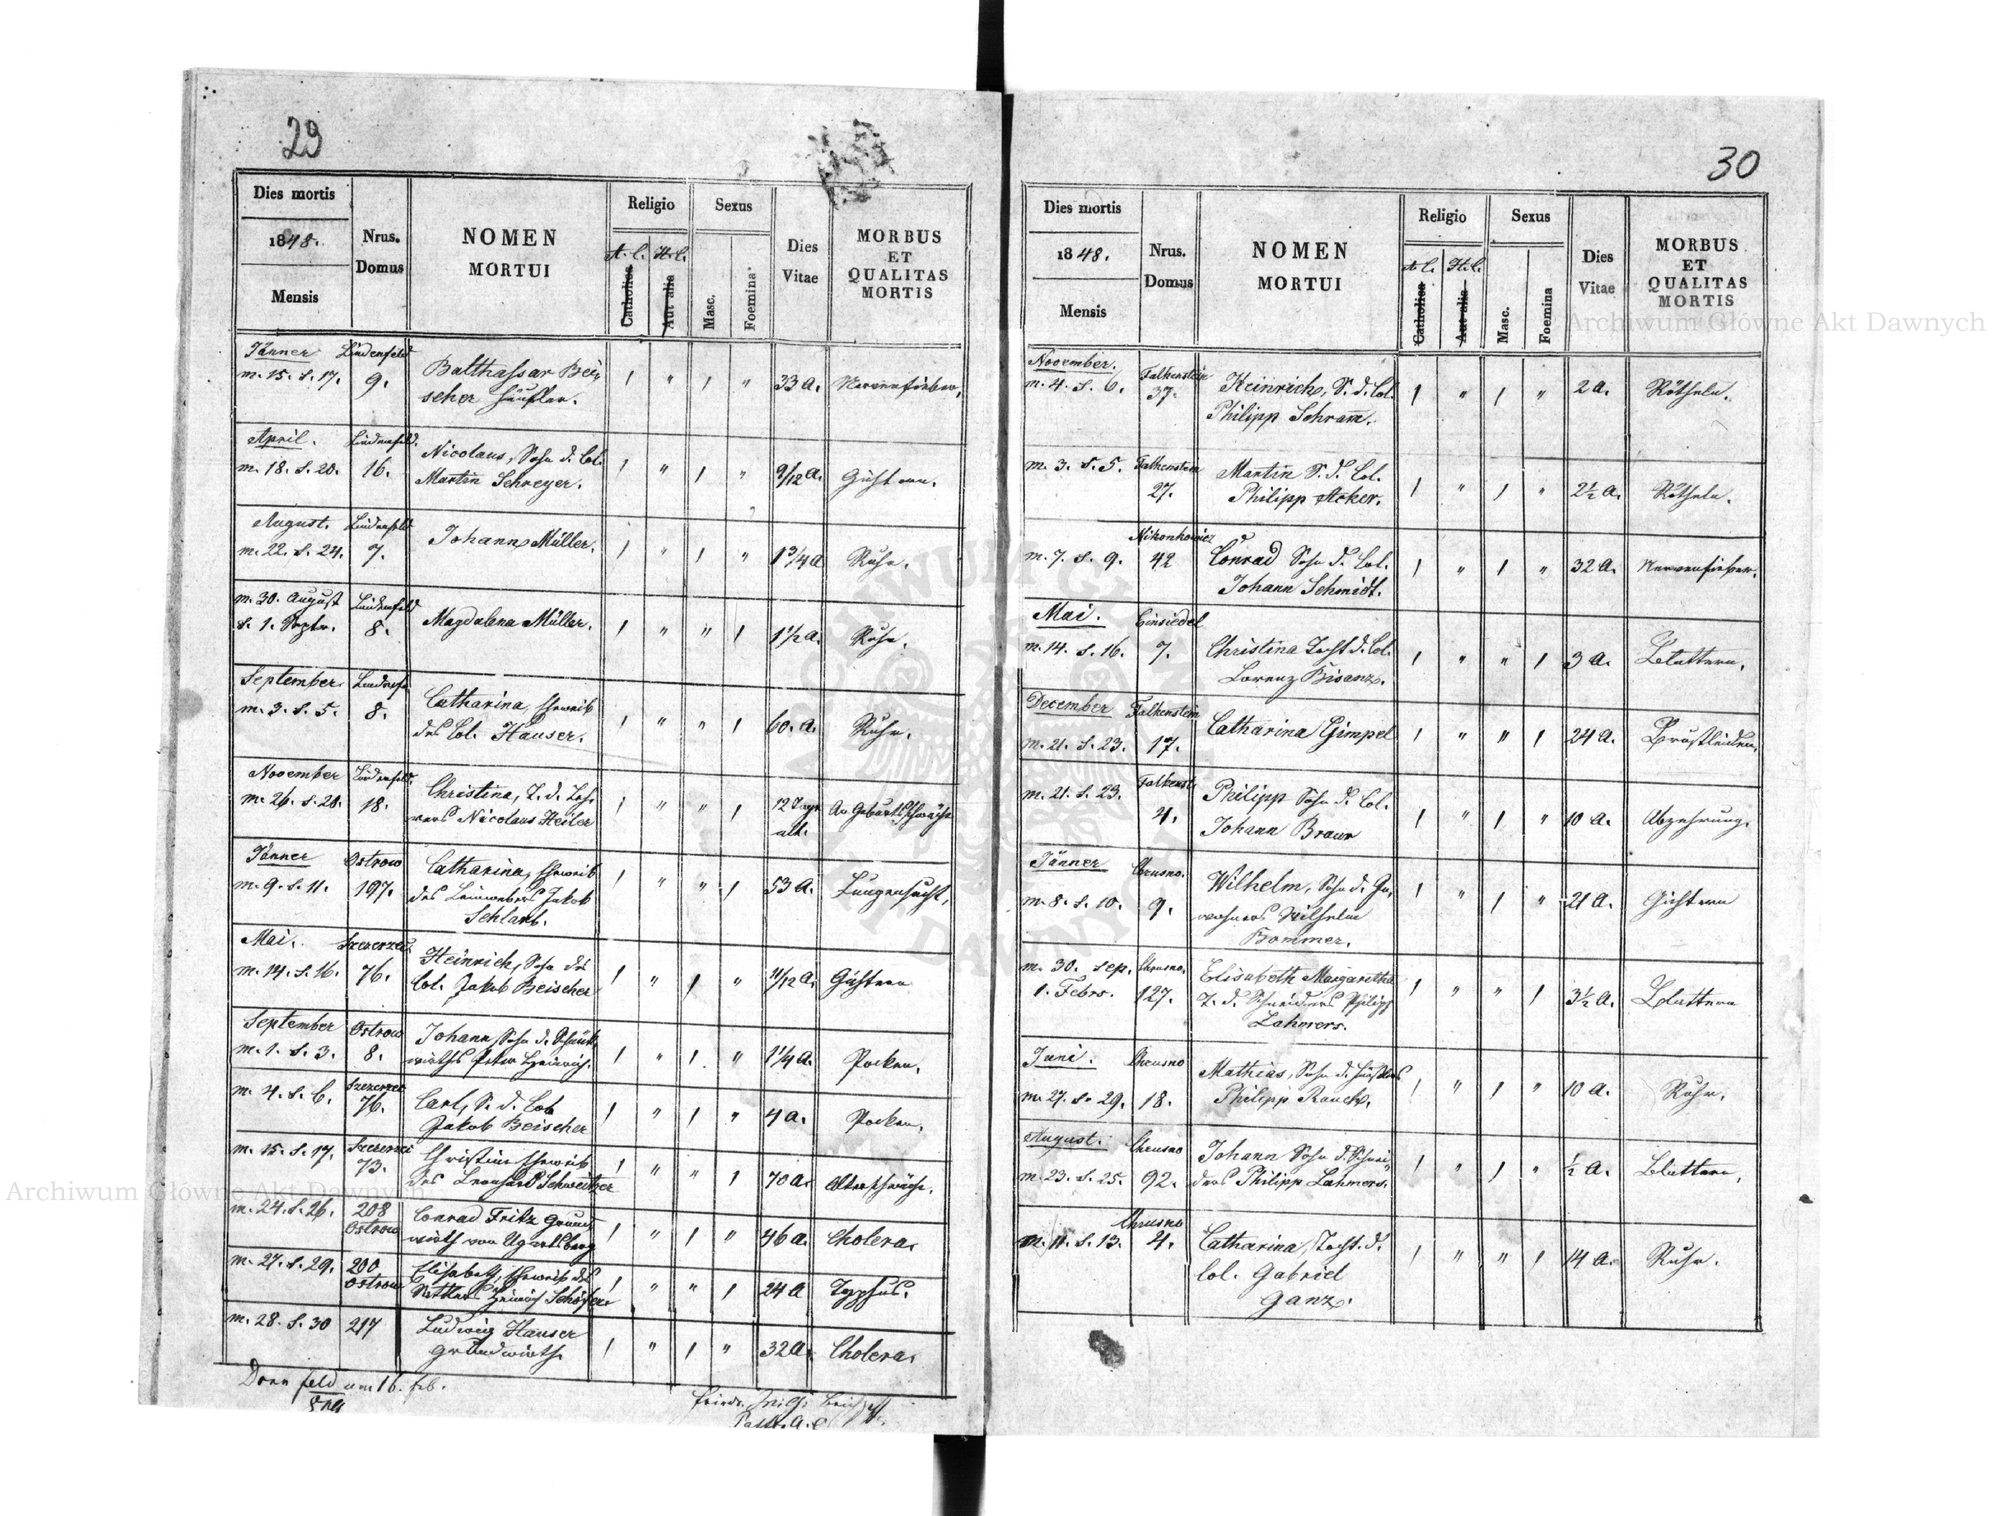 29
Dies mortis
1848.
Mensis
Nrus.
Domus
NOMEN
MORTUI
Religio
A. C.
H. C.
Catholica
Aut alia
Sexus
Masc.
Foemina
Dies
Vitae
MORBUS
ET
QUALITAS
MORTIS
Jänner Lindenfeld
m. 15. s. 17. 9. Balthassar Bei-
scher Häusler. 1 " 1 " 33 a. Nervenfieber.
April. Lindenfeld.
m. 18. s. 20. 16. Nicolaus, Sohn d. Col.
Martin Schreyer. 1 " 1 " 9/12 a. Gichtern.
August. Lindenfeld
m. 22. s. 24. 7. Johann Müller. 1 " 1 " 1 3/4 a Ruhr.
m. 30. August Lindenfeld
s. 1. Septr. 8. Magdalena Müller. 1 " " 1 1 1/2 a. Ruhr.
September
m. 3. s. 5. 8. Catharina, Eheweib
des Col. Hauser. 1 " " 1 60. a. Ruhr.
November Lindenfeld.
m. 26. s. 28. 18. Christina, T. d.
Nicolaus Heiler 1 " " 1 12 Tage
alt. Geburtsschwäche
Jänner Ostrow
m. 9. s. 11. 197. Catharina, Eheweib
des Leinwebers Jakob
Schlarb. 1 " " 1 53 a. Lungensucht,
Mai. Szczerzec
m. 14. s. 16. 76. Heinrich, Sohn des
Col. Jakob Beischer 1 " 1 " 11/12 a. Gichtern
September Ostrow
m. 1. s. 3. 8. Johann, Sohn d. Schänk-
wirths Peter Heinrich. 1 " 1 " 1 1/4 a. Pocken.
m. 4. s. 6. Szczerzec
76. Carl, S. d. Col.
Jakob Beischer 1 " 1 " 4 a. Pocken.
m. 15. s. 17. Szczerzec
73. Christina Eheweib
des Leonhard Schweitzer 1 " " 1 70 a. Altersschwäche.
m. 24. s. 26. 208
Ostrow Conrad Fritz Grund-
wirth von Ugartsberg 1 " 1 " 46 a. Cholera.
m. 27. s. 29. 200
Ostrow Elisabeth, Eheweib des
Heinrich Schäfer. 1 " " 1 24 a Typhus.
m. 28. s. 30 217 Ludwig Hauser
Grundwirth. 1 " 1 " 32 a. Cholera.
Dornfeld am 16. Feb.
30
Dies mortis
1848.
Mensis
Nrus.
Domus
NOMEN
MORTUI
Religio
A. C.
H. C.
Catholica
Aut alia
Sexus
Masc.
Foemina
Dies
Vitae
MORBUS
ET
QUALITAS
MORTIS
November. Falkenstein
m. 4. s. 6. 37. Heinrich, S. d. Col.
Philipp Schram. 1 " 1 " 2 a. Rötheln.
m. 3. s. 5. Falkenstein
27. Martin S. d. Col.
Philipp Acker. 1 " 1 " 2 1/2 a. Rötheln.
Nikonkowice
m. 7. s. 9. 42 Conrad Sohn d. Col.
Johann Schmidt. 1 " 1 " 32 a. Nervenfieber.
Mai. Einsiedel
m. 14. s. 16. 7. Christina Tocht. d. Col.
Lorenz Bisanz. 1 " " 1 3 a. Blattern.
December Falkenstein
m. 21. s. 23. 17. Catharina Gimpel 1 " " 1 24 a. Brustleiden.
Falkenst.
m. 21. s. 23. 4. Philipp Sohn d. Col.
Johann Braun 1 " 1 " 10 a. Abzehrung.
Jänner Chrusno.
m. 8. s. 10. 9. Wilhelm, Sohn d. In-
wohners Wilhelm
Bommer. 1 " 1 " 21 a. Gichtern
m. 30. sep. Chrusno.
1. Febr. 127. Elisabeth Margaretha
T. d. Schneiders Philipp
Lahmers. 1 " " 1 3 1/2 a. Blattern
Juni. Chrusno
m. 27. s. 29. 18. Mathias, Sohn d. Häuslers
Philipp Rauch. 1 " 1 " 10 a. Ruhr.
August. Chrusno
m. 23. s. 25. 92. Johann Sohn d. Schnei-
ders Philipp Lahmers. 1 " 1 " 1/2 a. Blattern.
Chrusno
m. 11. s. 13. 4. Catharina, Tocht. d.
Col. Gabriel
Ganz. 1 " " 1 14 a. Ruhr.
Archiwum Główne Akt Dawnych
Archiwum Główne Akt Dawnych
ARCHIWUM GŁÓWNE AKT DAWNYCH